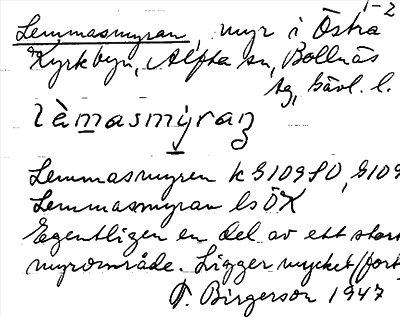 1-2
Lemmasmyran, myr i Östra
Kyrkbyn, Alfta sn, Bollnäs
tg, Gävl. l.
lèmasmyraŋ
Lemmasmyren k G109SO, G109
Lemmasmyran ls ÖK
Egentligen en del av ett stort
myrområde. Ligger mycket/fort
Birgerson 1947